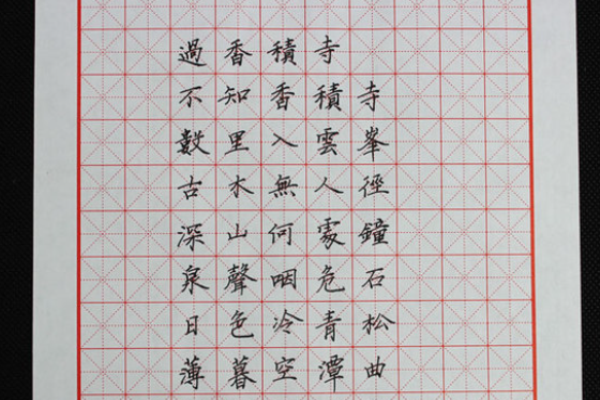 過香積寺
不知香積寺
數里入雲峯
古木無人徑
深山何處鐘
泉聲咽危石
日色冷青松
薄暮空潭曲